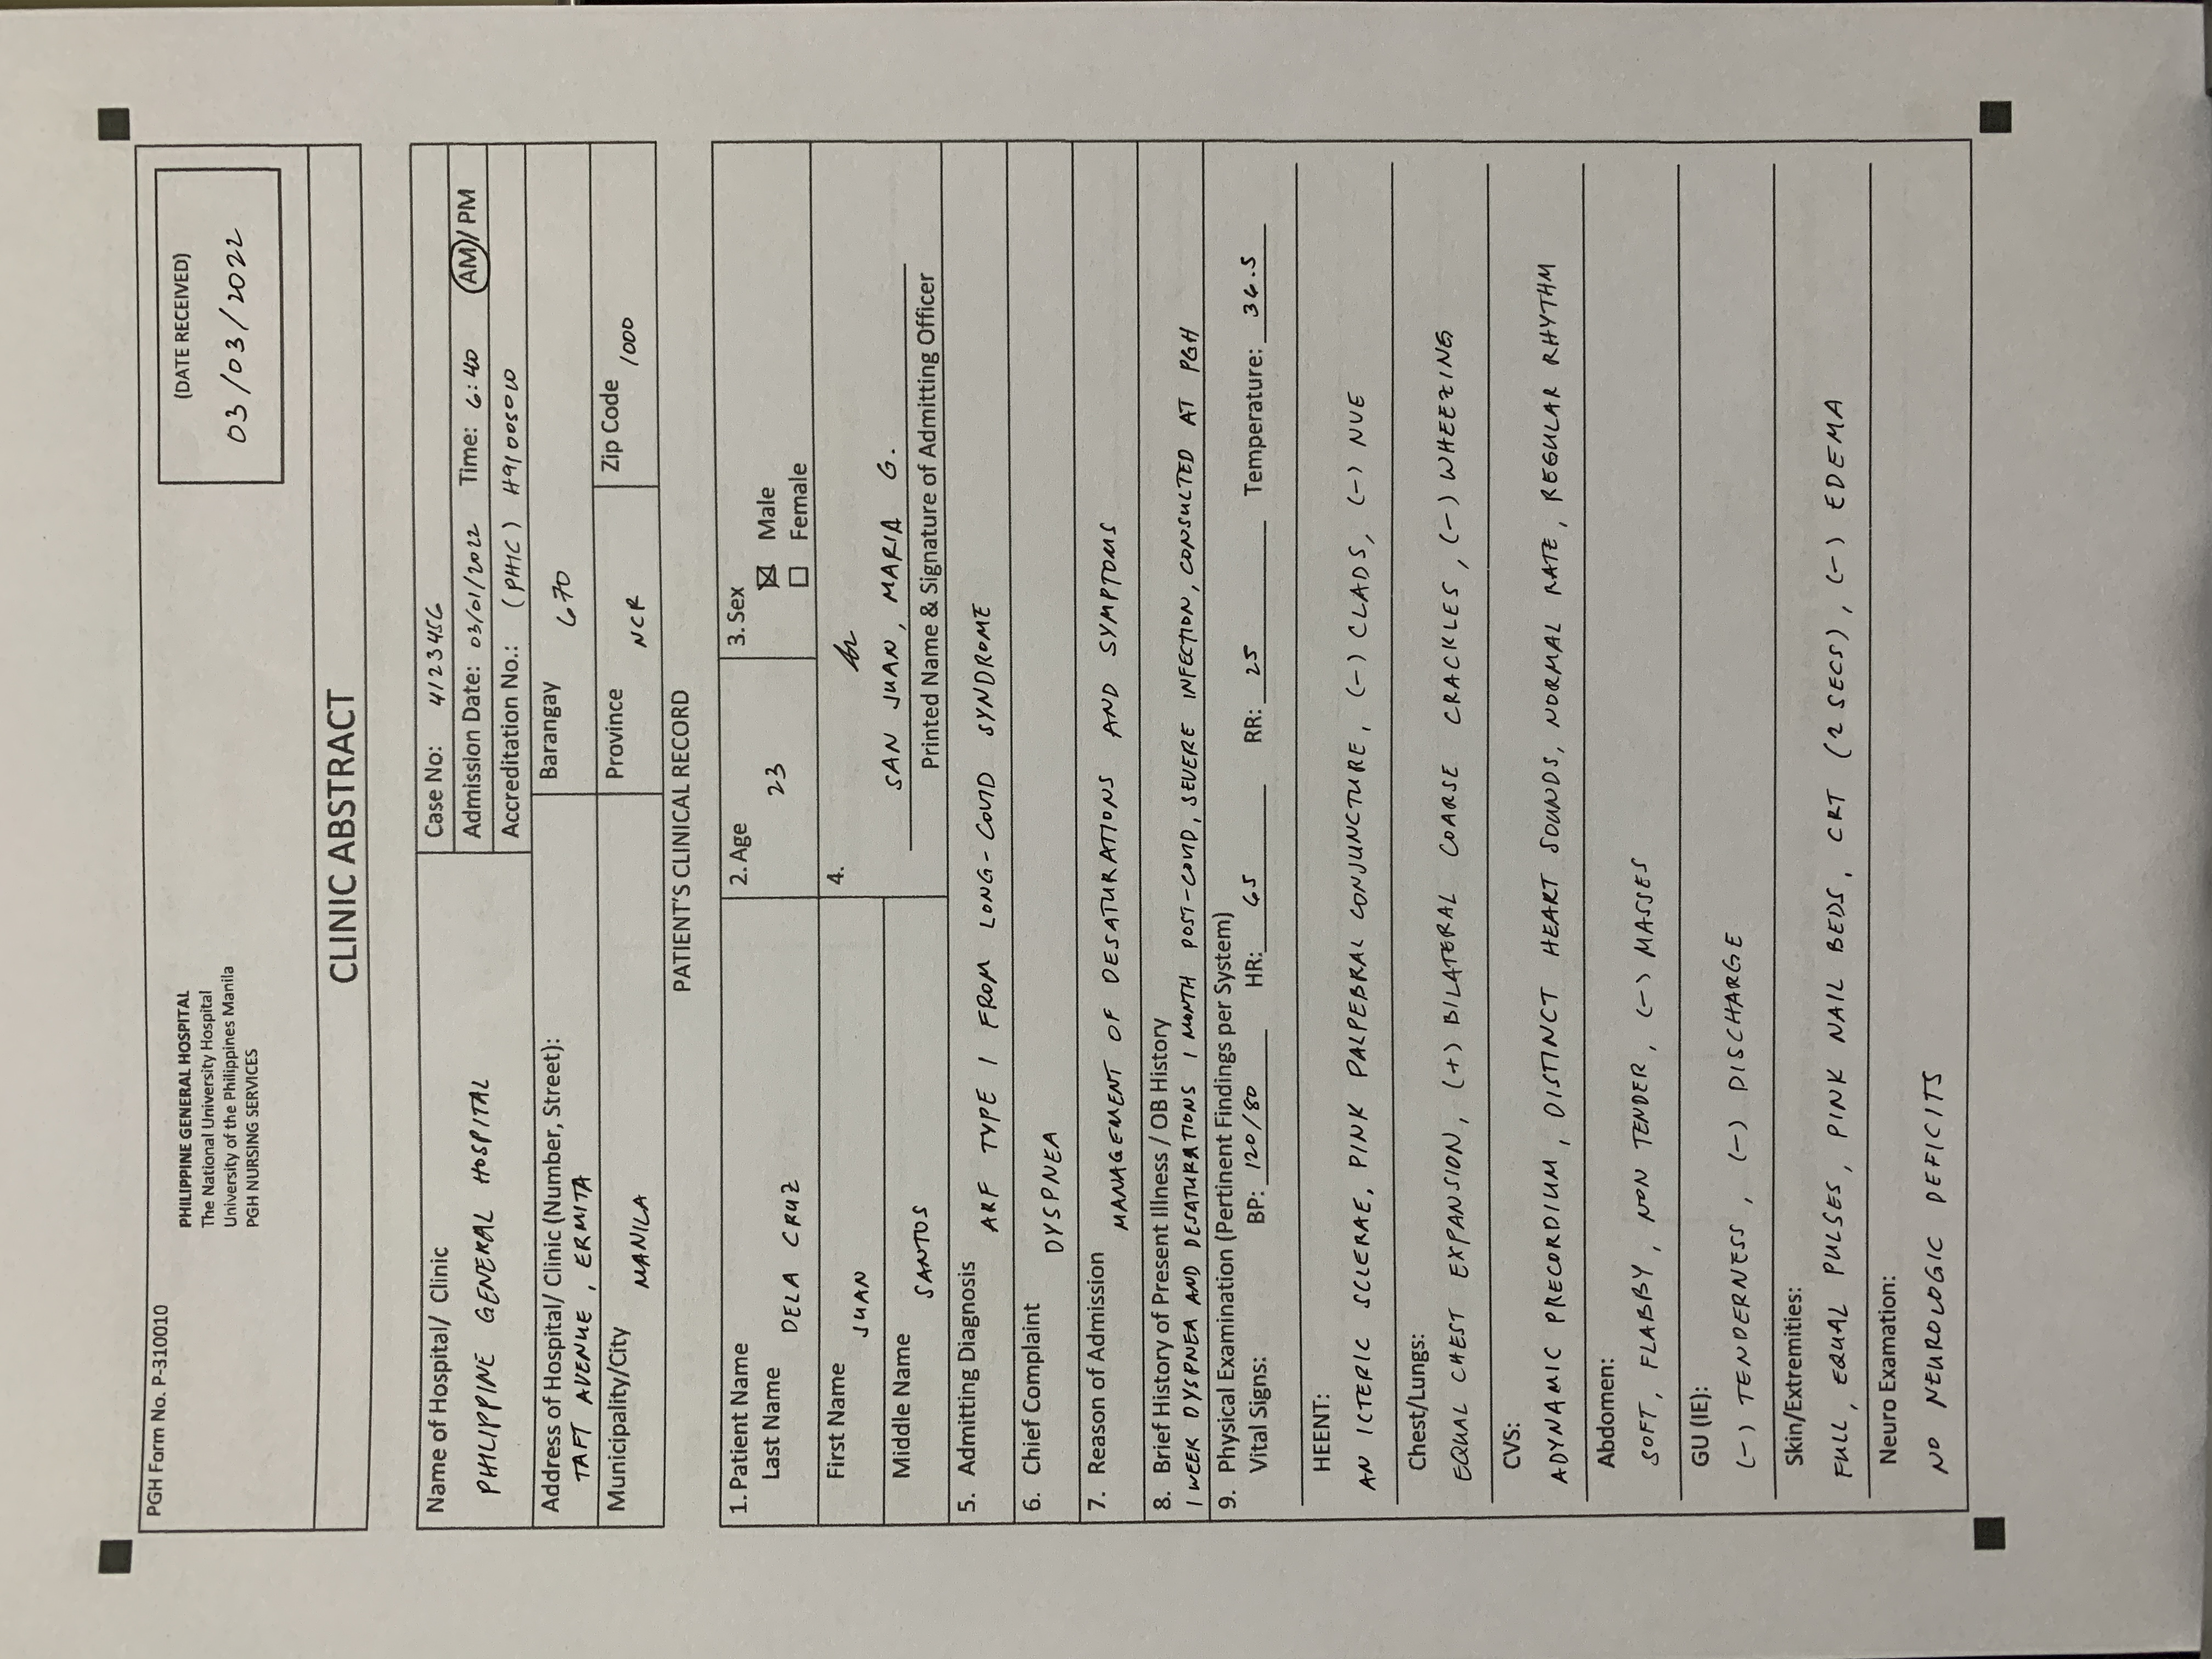 PGH Form No. P-310010
PHILIPPINE GENERAL HOSPITAL
The National University Hospital
University of the Philippines Manila
PGH NURSING SERVICES
(DATE RECEIVED)
03/03/2022
CLINIC ABSTRACT
Name of Hospital/ Clinic
PHILIPPINE GENERAL HOSPITAL
Case No: 4123456
Admission Date: 03/01/2022 Time: 6:40 AM/ PM
Accreditation No.: (PHIC) H91005010
Address of Hospital/ Clinic (Number, Street):
TAFT AVENUE, ERMITA
Barangay
670
Municipality/City
MANILA
Province
NCR
Zip Code
1000
PATIENT'S CLINICAL RECORD
1. Patient Name
Last Name
DELA CRUZ
2. Age
23
3. Sex
Male
Female
First Name
JUAN
Middle Name
SANTOS
4.
SAN JUAN, MARIA G.
Printed Name & Signature of Admitting Officer
5. Admitting Diagnosis
ARF TYPE 1 FROM LONG-COVID SYNDROME
6. Chief Complaint
DYSPNEA
7. Reason of Admission
MANAGEMENT OF DESATURATIONS AND SYMPTOMS
8. Brief History of Present Illness / OB History
1 WEEK DYSPNEA AND DESATURATIONS 1 MONTH POST-COVID, SEVERE INFECTION, CONSULTED AT PGH
9. Physical Examination (Pertinent Findings per System)
Vital Signs: BP: 120/80 HR: 65 RR: 25 Temperature: 36.5
HEENT:
AN ICTERIC SCLERAE, PINK PALPEBRAL CONJUNCTURE, (-) CLADS, (-) NVE
Chest/Lungs:
EQUAL CHEST EXPANSION, (+) BILATERAL COARSE CRACKLES, (-) WHEEZING
CVS:
ADYNAMIC PRECORDIUM, DISTINCT HEART SOUNDS, NORMAL RATE, REGULAR RHYTHM
Abdomen:
SOFT, FLABBY, NON TENDER, (-) MASSES
GU (IE):
(-) TENDERNESS, (-) DISCHARGE
Skin/Extremities:
FULL, EQUAL PULSES, PINK NAIL BEDS, CRT (2 SECS), (-) EDEMA
Neuro Examation:
NO NEUROLOGIC DEFICITS